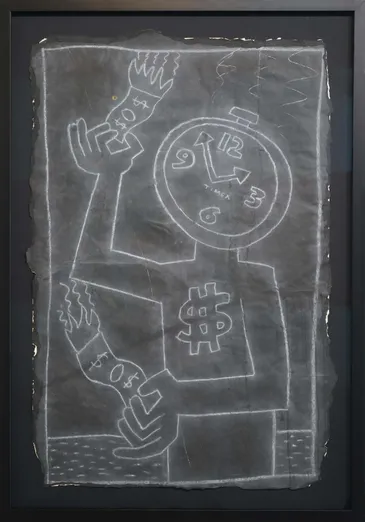 $ O $
12
9
3
6
$
$ O $